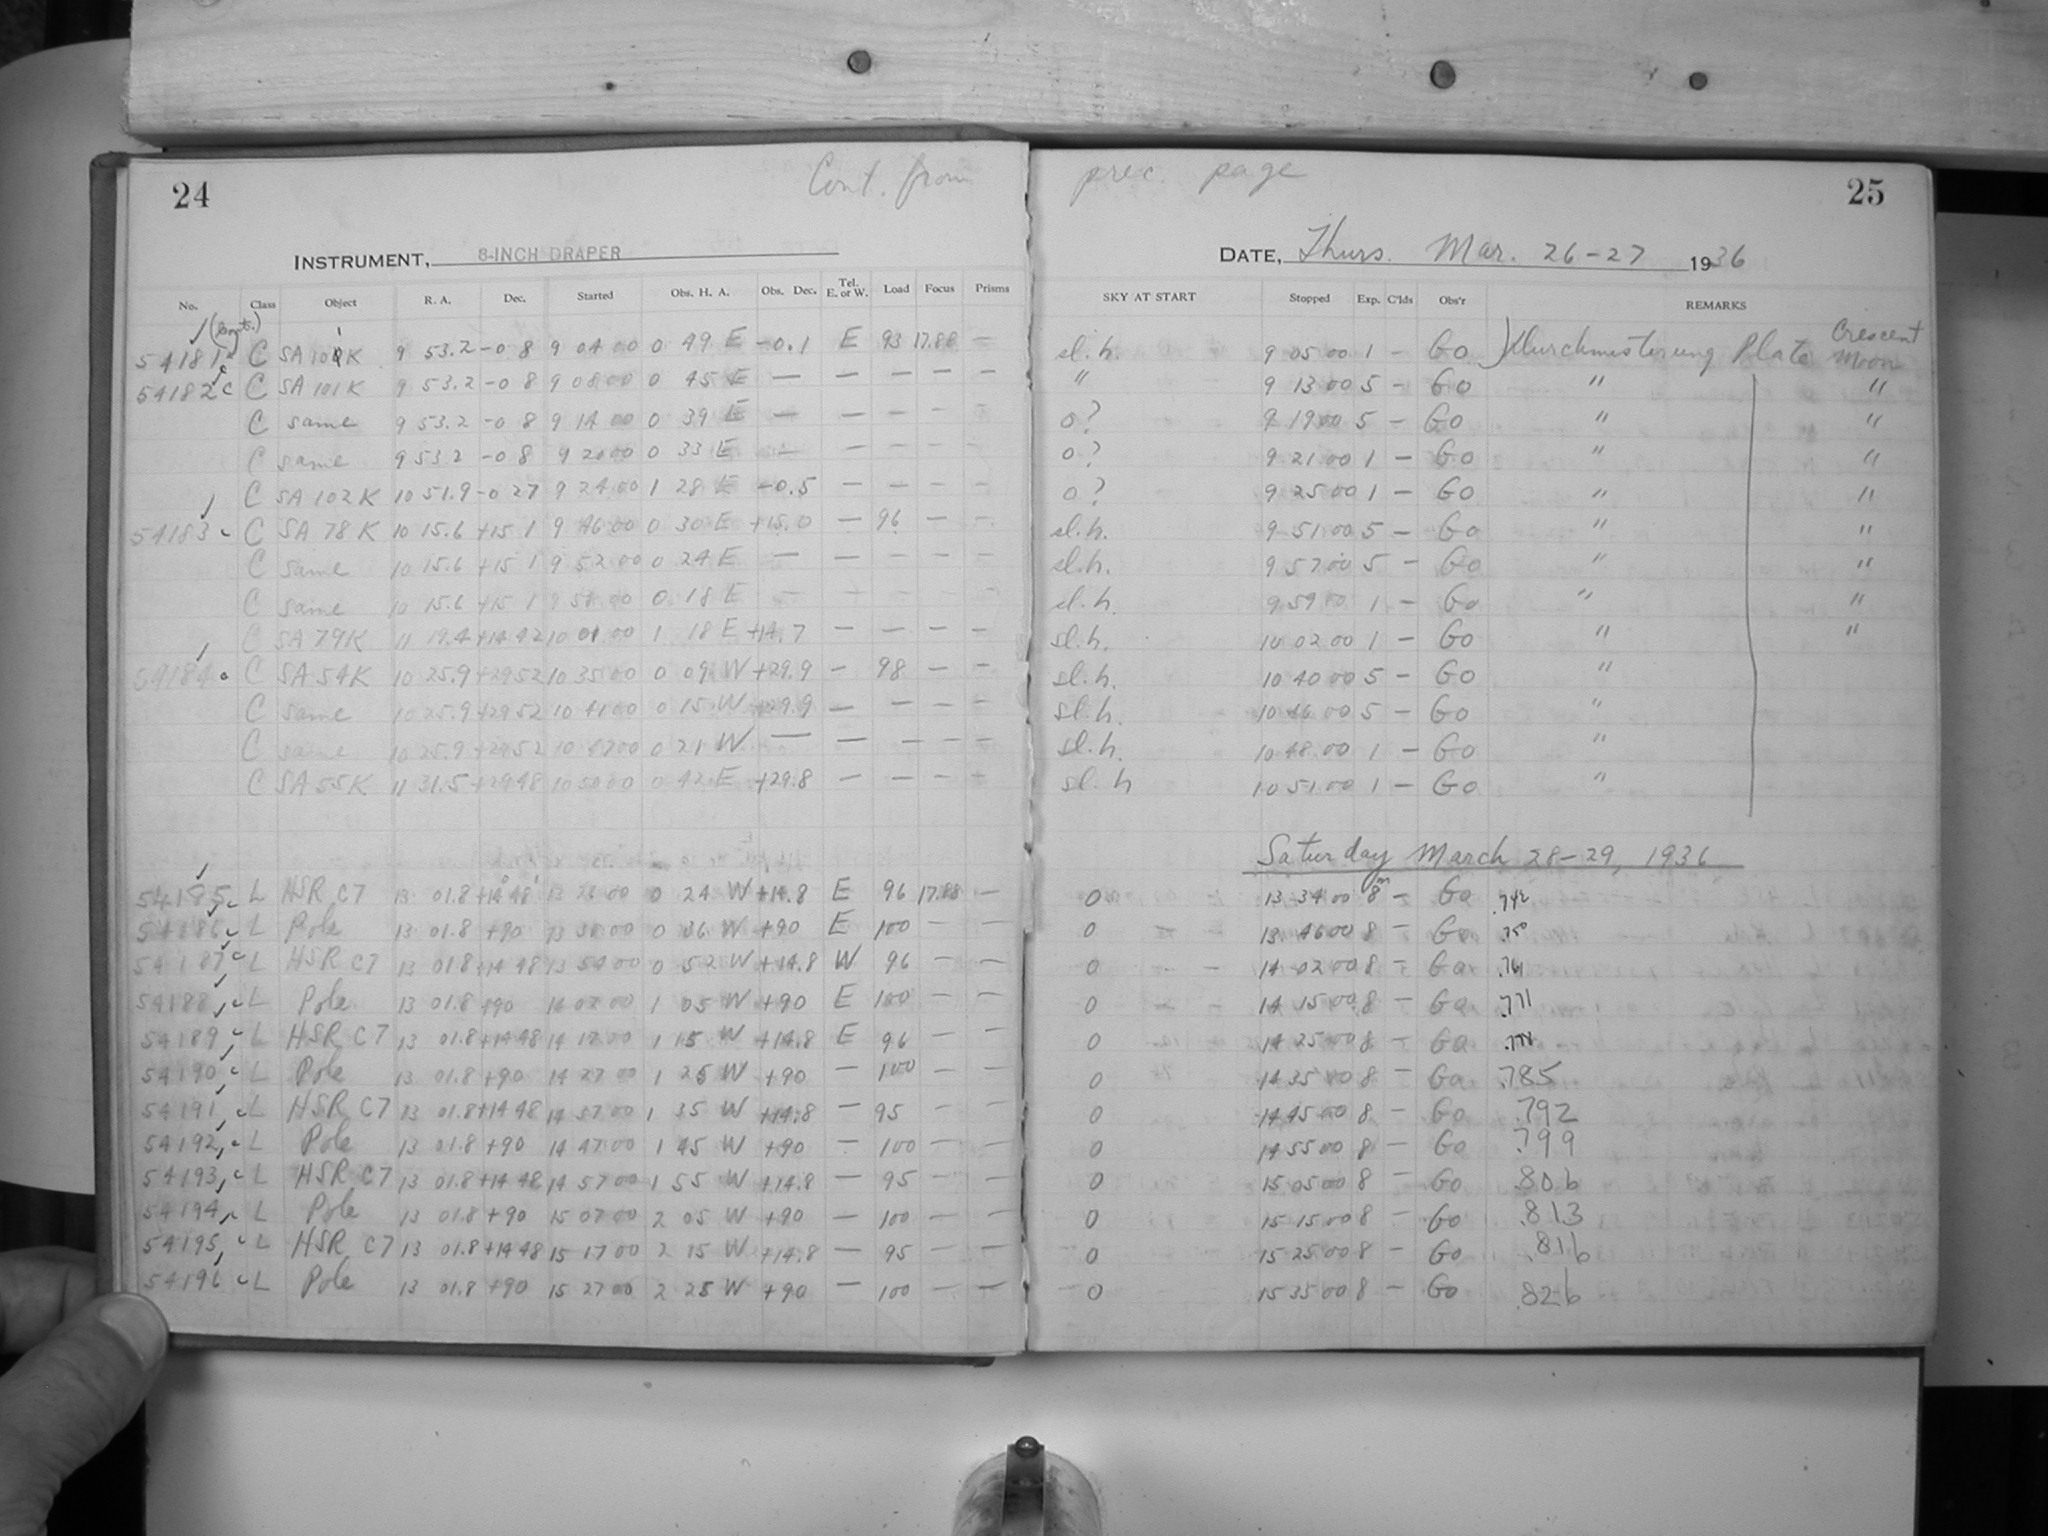 24 Cont. from prec. page 25
INSTRUMENT, 8-INCH DRAPER DATE, Thurs. Mar. 26-27 1936
No. Class Object R. A. Dec. Started Obs. H. A. Obs. Dec. Tel. E. or W. Load Focus Prisms SKY AT START Stopped Exp. C'lds Obs'r REMARKS
(Cont.) Crescent
54181 C SA 101 K 9 53.2 -0 8 9 04 00 0 49 E -0.1 E 93 17.88 — sl. h. 9 05 00 1 — Go Durchmusterung Plate Moon
54182 c C SA 101 K 9 53.2 -0 8 9 08 00 0 45 E — — — — — " 9 13 00 5 — Go " "
C same 9 53.2 -0 8 9 14 00 0 39 E — — — — — o? 9 19 00 5 — Go " "
C same 9 53.2 -0 8 9 20 00 0 33 E — — — — — o? 9 21 00 1 — Go " "
C SA 102 K 10 51.9 -0 27 9 24 00 1 28 E -0.5 — — — — o? 9 25 00 1 — Go " "
54183 C SA 78 K 10 15.6 +15 1 9 46 00 0 30 E +15.0 — 96 — — sl. h. 9 51 00 5 — Go " "
C same 10 15.6 +15 1 9 52 00 0 24 E — — — — — sl. h. 9 57 00 5 — Go " "
C same 10 15.6 +15 1 9 58 00 0 18 E — — — — — sl. h. 9 59 00 1 — Go " "
C SA 79 K 11 19.4 +14 42 10 01 00 1 18 E +14.7 — — — — sl. h. 10 02 00 1 — Go " "
54184 C SA 54 K 10 25.9 +29 52 10 35 00 0 09 W +29.9 — 98 — — sl. h. 10 40 00 5 — Go "
C same 10 25.9 +29 52 10 41 00 0 15 W +29.9 — — — — sl. h. 10 46 00 5 — Go "
C same 10 25.9 +29 52 10 47 00 0 21 W — — — — — sl. h. 10 48 00 1 — Go "
C SA 55 K 11 31.5 +29 48 10 50 00 0 42 E +29.8 — — — — sl. h 10 51 00 1 — Go "
Saturday March 28-29, 1936
54185 c L HSR C7 13 01.8 +14° 48' 13 26 00 0 24 W +14.8 E 96 17.88 — 0 13 34 00 8m — Go .742
54186 c L Pole 13 01.8 +90 13 38 00 0 36 W +90 E 100 — — 0 13 46 00 8 — Go .750
54187 c L HSR C7 13 01.8 +14 48 13 54 00 0 52 W +14.8 W 96 — — 0 14 02 00 8 — Go .761
54188 c L Pole 13 01.8 +90 14 07 00 1 05 W +90 E 100 — — 0 14 15 00 8 — Go .771
54189 c L HSR C7 13 01.8 +14 48 14 17 00 1 15 W +14.8 E 96 — — 0 14 25 00 8 — Go .778
54190 c L Pole 13 01.8 +90 14 27 00 1 25 W +90 — 100 — — 0 14 35 00 8 — Go .785
54191 c L HSR C7 13 01.8 +14 48 14 37 00 1 35 W +14.8 — 95 — — 0 14 45 00 8 — Go .792
54192 c L Pole 13 01.8 +90 14 47 00 1 45 W +90 — 100 — — 0 14 55 00 8 — Go .799
54193 c L HSR C7 13 01.8 +14 48 14 57 00 1 55 W +14.8 — 95 — — 0 15 05 00 8 — Go .806
54194 c L Pole 13 01.8 +90 15 07 00 2 05 W +90 — 100 — — 0 15 15 00 8 — Go .813
54195 c L HSR C7 13 01.8 +14 48 15 17 00 2 15 W +14.8 — 95 — — 0 15 25 00 8 — Go .816
54196 c L Pole 13 01.8 +90 15 27 00 2 25 W +90 — 100 — — 0 15 35 00 8 — Go .826